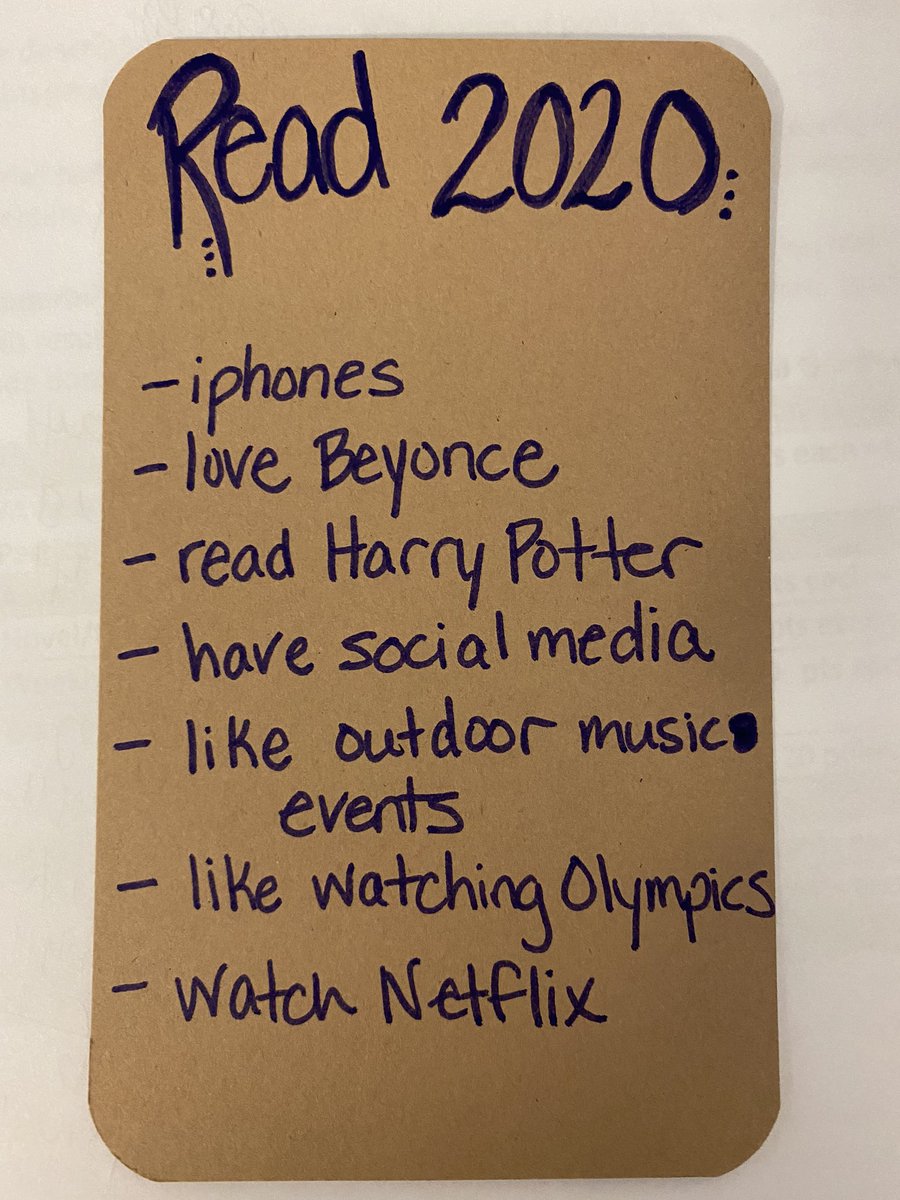 Read 2020
- iphones
- love Beyonce
- read Harry Potter
- have social media
- like outdoor music
events
- like watching Olympics
- watch Netflix